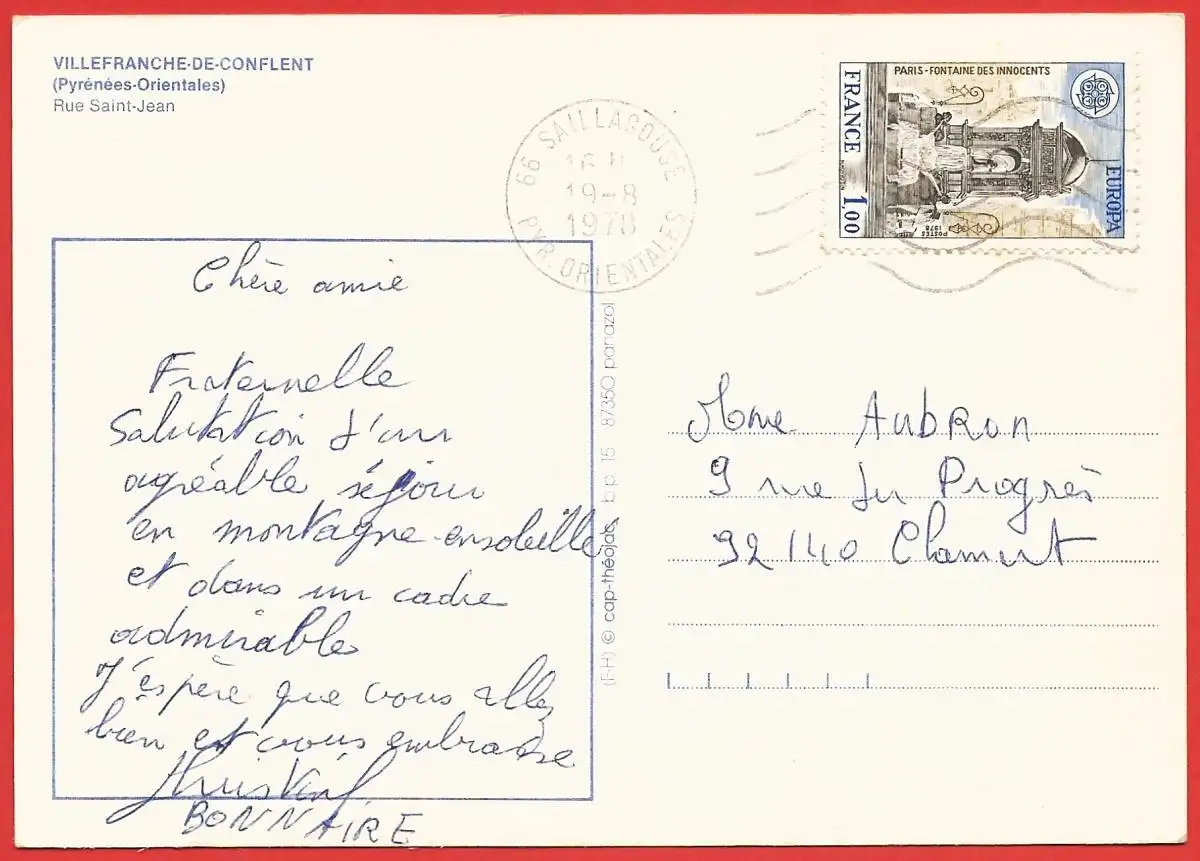 VILLEFRANCHE-DE-CONFLENT
(Pyrénées-Orientales)
Rue Saint-Jean
66 SAILLAGOUSE
16 H
19-8
1978
PYR. ORIENTALES
PARIS-FONTAINE DES INNOCENTS
FRANCE 1,00
EUROPA
POSTES
1978
Chère amie
Fraternelle
Salutation d'un
agréable séjour
en montagne ensoleillée
et dans un cadre
admirable
J'espère que vous allez
bien et vous embrasse
BONNAIRE
(F-H) © cap-théojac b.p. 15 87350 panazol
Mme AubRon
9 rue du Progrès
92140 Clamart